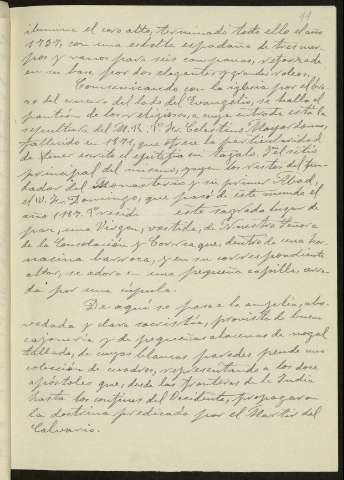 11
ilumina el coro alto, terminado todo ello el año
1737, con una esbelta espadaña de tres cuer-
pos y vanos para seis campanas, reforzada
en su base por dos elegantes y grandes roleos.
Comunicando con la iglesia por el
del crucero del lado del Evangelio, se halla el
panteón de los religiosos, a cuya entrada está la
sepultura del M. R. P. Fr. Celestino Mayordomo,
fallecido en 1871, que ofrece la particularidad
de tener escrito el epitafio en tagalo. En el sitio
principal del mismo, yacen los restos del fun-
dador del Monasterio y su primer Abad,
el V. Fr. Domingo, que pasó de este mundo el
año 1187. Preside este sagrado lugar de
paz, una Virgen, vestida, de Nuestra Señora
de la Consolación y Correa que, dentro de una hor-
nacina barroca, y en su correspondiente
altar, se adora en una pequeña capilla, cerra-
da por una cúpula.
De aquí se pasa a la amplia, abo-
vedada y clara sacristía, provista de buena
cajonería y de pequeñas alacenas de nogal
tallada, de cuyas blancas paredes pende una
colección de cuadros, representando a los doce
apóstoles que, desde las fronteras de la India
hasta los confines del Occidente, propagaron
la doctrina predicada por el Mártir del
Calvario.